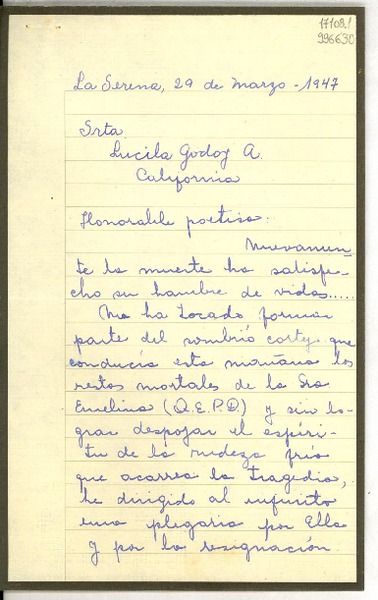 17108!
996630
La Serena, 29 de Marzo - 1947
Srta
Lucila Godoy A.
California
Honorable poetisa:
Nuevamen-
te la muerte ha satisfe-
cho su hambre de vidas.....
Me ha tocado formar
parte del sombrío cortejo que
conducía esta mañana los
restos mortales de la Sra
Emelina (Q.E.P.D) y sin lo-
grar despojar el espíri-
tu de la rudeza fría
que acarrea la tragedia,
he dirigido al infinito
una plegaria por Ella
y por la resignación